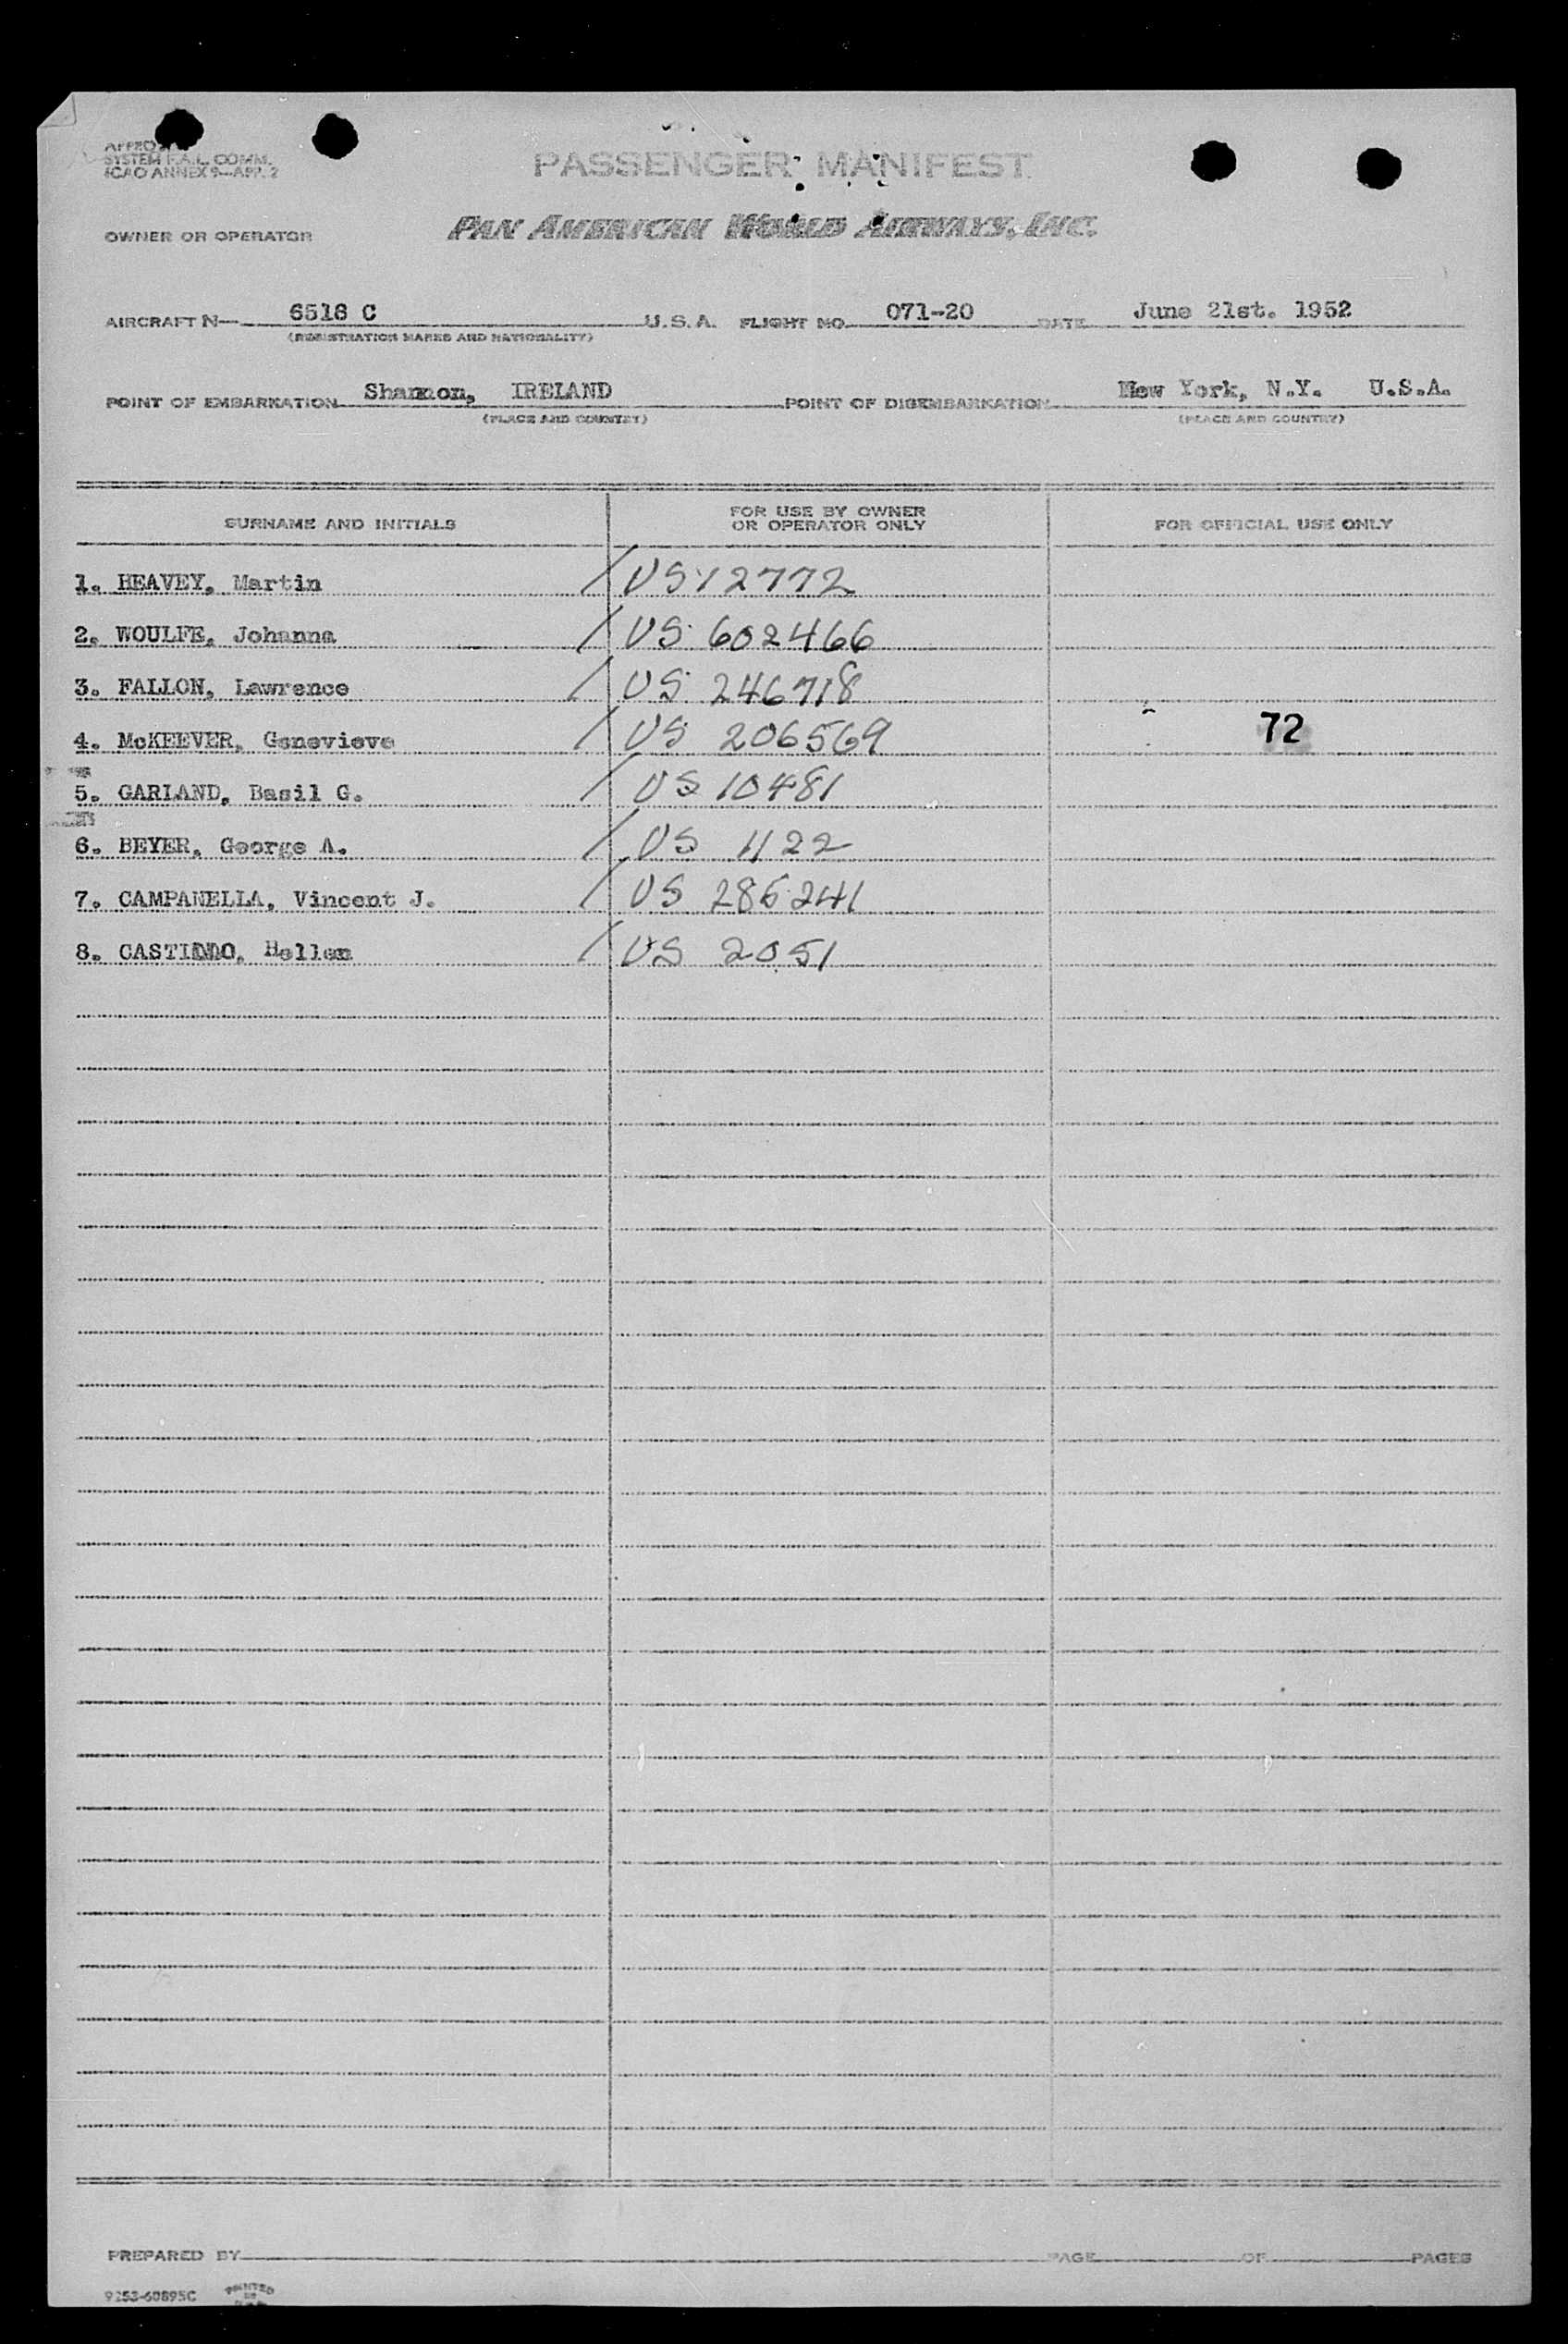 SYSTEM F.A.L. COMM.
ICAO ANNEX 9—APP. 2
PASSENGER MANIFEST
OWNER OR OPERATOR PAN AMERICAN WORLD AIRWAYS, INC.
AIRCRAFT N— 6518 C U.S.A. FLIGHT NO. 071-20 DATE June 21st. 1952
(REGISTRATION MARKS AND NATIONALITY)
POINT OF EMBARKATION Shannon, IRELAND POINT OF DISEMBARKATION New York, N.Y. U.S.A.
(PLACE AND COUNTRY) (PLACE AND COUNTRY)
SURNAME AND INITIALS FOR USE BY OWNER OR OPERATOR ONLY FOR OFFICIAL USE ONLY
1. HEAVEY, Martin / US 12772
2. WOULFE, Johanna / US 602466
3. FALLON, Lawrence / US 246718
4. McKEEVER, Genevieve / US 206569 72
5. GARLAND, Basil G. / US 10481
6. BEYER, George A. / US 1122
7. CAMPANELLA, Vincent J. / US 285241
8. Hellen / US 2051
PREPARED BY PAGE OF PAGES
9253-60895C PRINTED